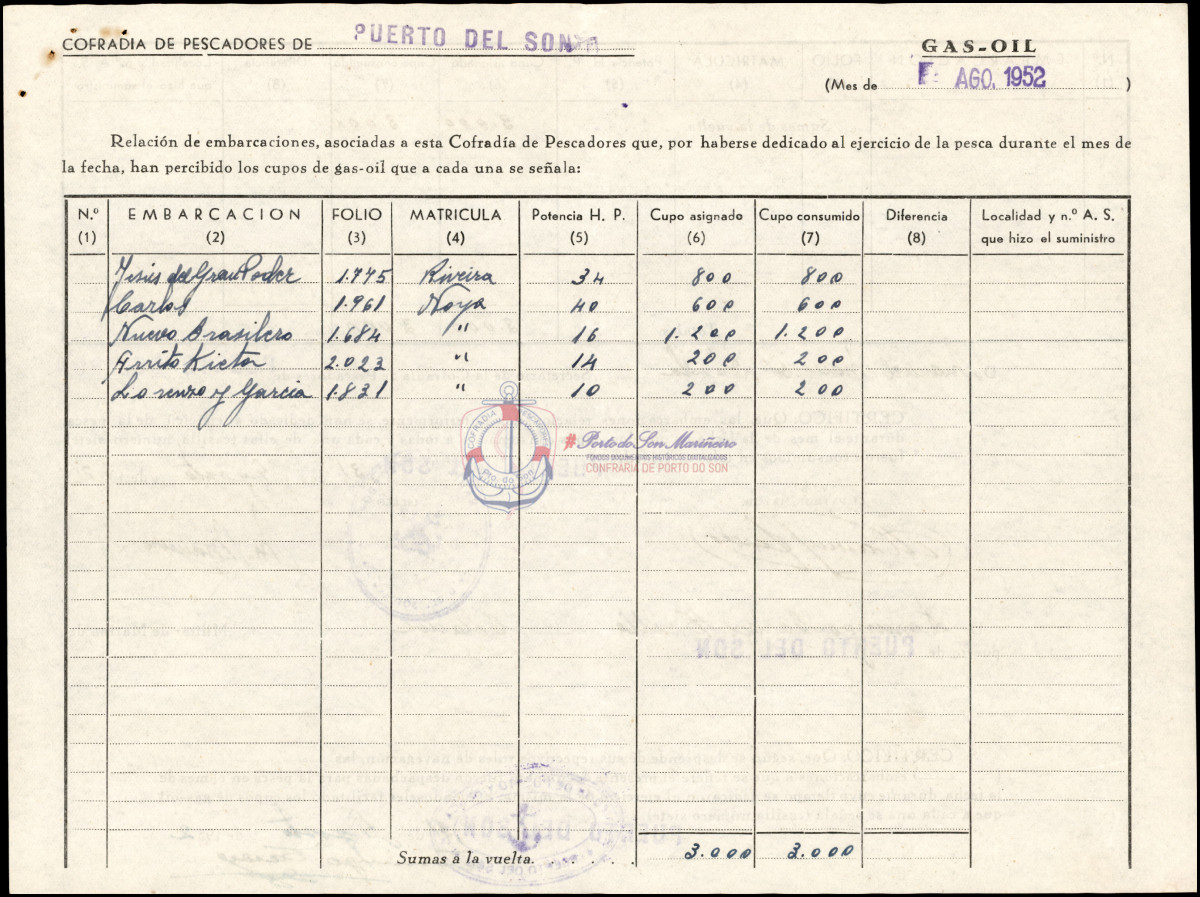 COFRADIA DE PESCADORES DE PUERTO DEL SON
GAS-OIL
(Mes de AGO. 1952 )
Relación de embarcaciones, asociadas a esta Cofradía de Pescadores que, por haberse dedicado al ejercicio de la pesca durante el mes de
la fecha, han percibido los cupos de gas-oil que a cada una se señala:
N.º EMBARCACION FOLIO MATRICULA Potencia H. P. Cupo asignado Cupo consumido Diferencia Localidad y n.º A. S.
(1) (2) (3) (4) (5) (6) (7) (8) que hizo el suministro
Jesús del Gran Poder 1.745 Riveira 34 800 800
Carlos 1.961 Noya 40 600 600
Nuevo Brasilero 1.684 " 16 1.200 1.200
2.023 " 14 200 200
Lorenzo y Garcia 1.831 " 10 200 200
COFRADIA PESCADORES
Pto. do Son
#Porto do Son Mariñeiro
FONDOS DOCUMENTAIS HISTÓRICOS DIGITALIZADOS
CONFRARÍA DE PORTO DO SON
Sumas a la vuelta. 3.000 3.000